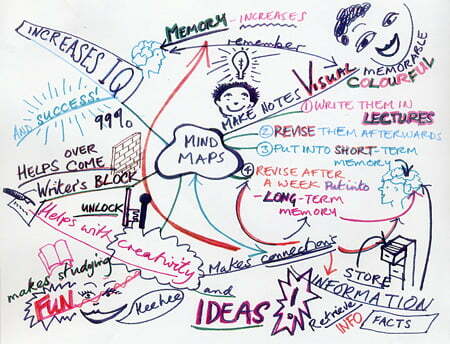 MEMORY - INCREASES
remember
INCREASES IQ
AND SUCCESS!
99%
MIND
MAPS
MAKE NOTES VISUAL
MEMORABLE
COLOURFUL
① WRITE THEM IN
LECTURES
② REVISE THEM AFTERWARDS
③ PUT INTO SHORT-TERM
MEMORY
④ REVISE AFTER
A WEEK Put into
LONG-TERM
MEMORY
HELPS OVER
COME
Writer's BLOCK
UNLOCK
Helps with Creativity
makes studying
FUN
Heehee
Makes connections
and
IDEAS
!
STORE
INFORMATION
Retrieve
INFO
FACTS